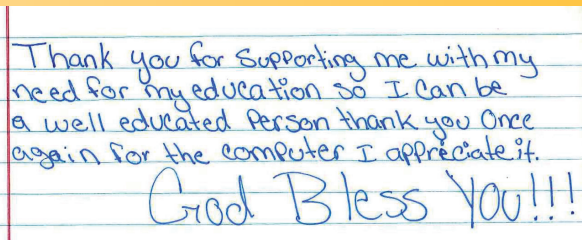 Thank you for Supporting me with my
need for my education so I Can be
a well educated Person thank you Once
again for the computer I appreciate it.
God Bless You!!!